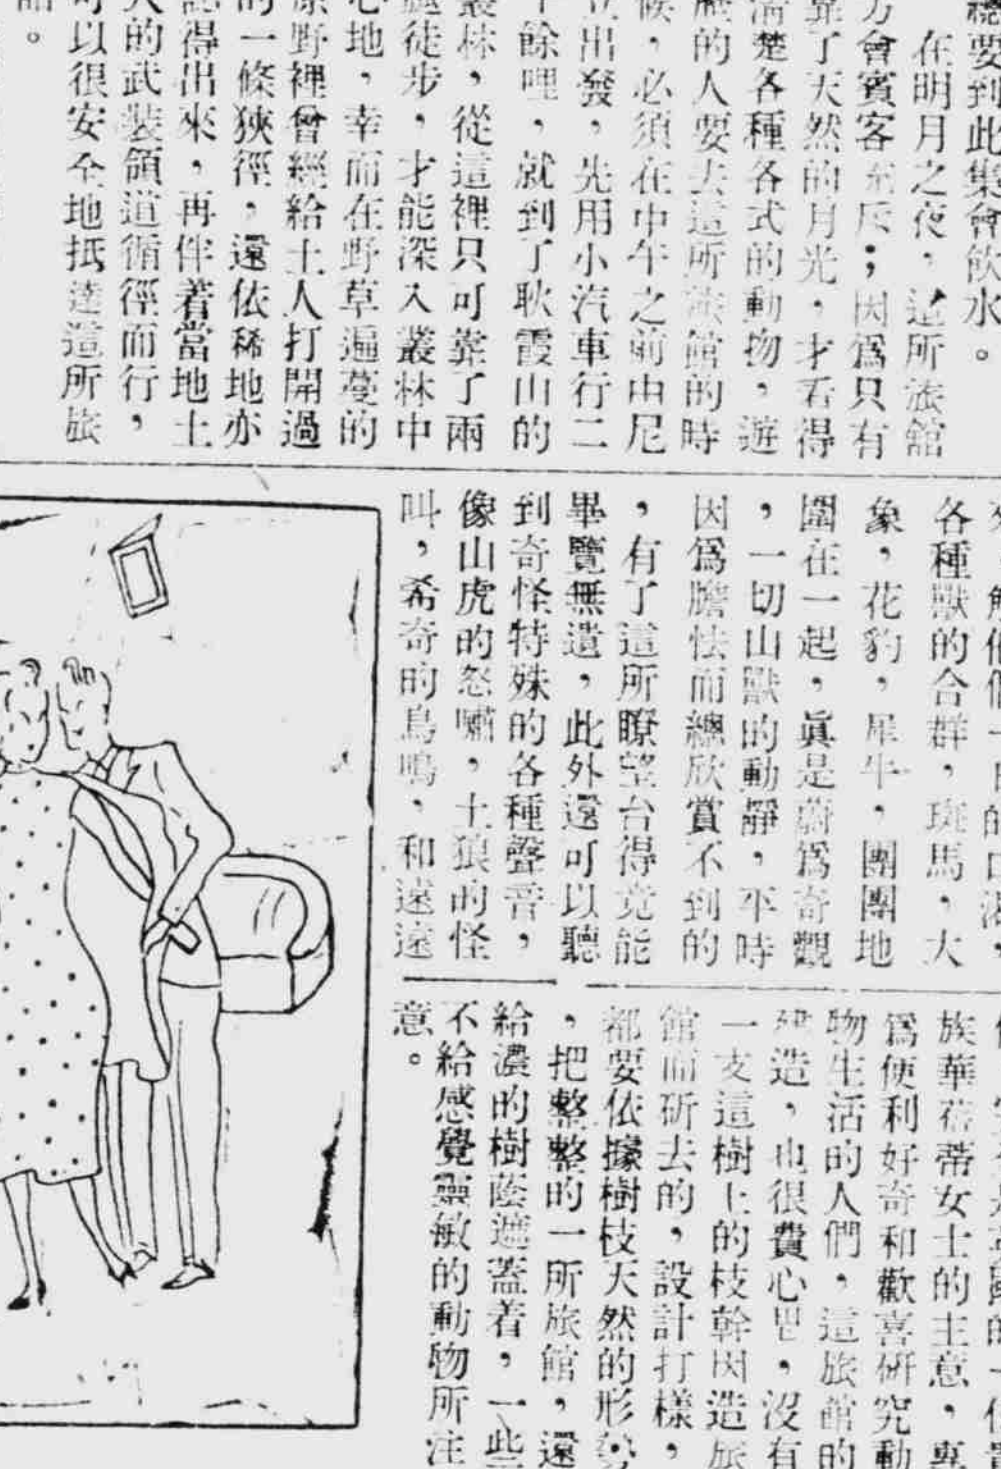 總要到此集會飲水。
在明月之夜，這所旅館
方會賓客充斥；因爲只有
靠了天然的月光，才看得
清楚各種各式的動物，遊
歷的人要去這所旅館的時
候，必須在中午之前由尼
立出發，先用小汽車行二
十餘哩，就到了耿霞山的
叢林，從這裡只可靠了兩
腿徒步，才能深入叢林中
心地，幸而在野草遍蔓的
原野裡曾經給土人打開過
的一條狹徑，還依稀地亦
認得出來，再伴着當地土
人的武裝領道循徑而行，
可以很安全地抵達這所旅
館。
各種獸的合群，斑馬，大
象，花豹，犀牛，團團地
圍在一起，眞是蔚爲奇觀
，一切山獸的動靜，平時
因爲膽怯而總欣賞不到的
，有了這所瞭望台得竟能
畢覽無遺，此外還可以聽
到奇怪特殊的各種聲音，
像山虎的怒嘯，土狼的怪
叫，希奇的鳥鳴，和遠遠
族華蓓蒂女士的主意，專
爲便利好奇和歡喜硏究動
物生活的人們，這旅館的
建造，也很費心思，沒有
一支這樹上的枝幹因造旅
館而斫去的，設計打樣，
都要依據樹枝天然的形勢
，把整整的一所旅館，還
給濃的樹蔭遮蓋着，一些
不給感覺靈敏的動物所注
意。